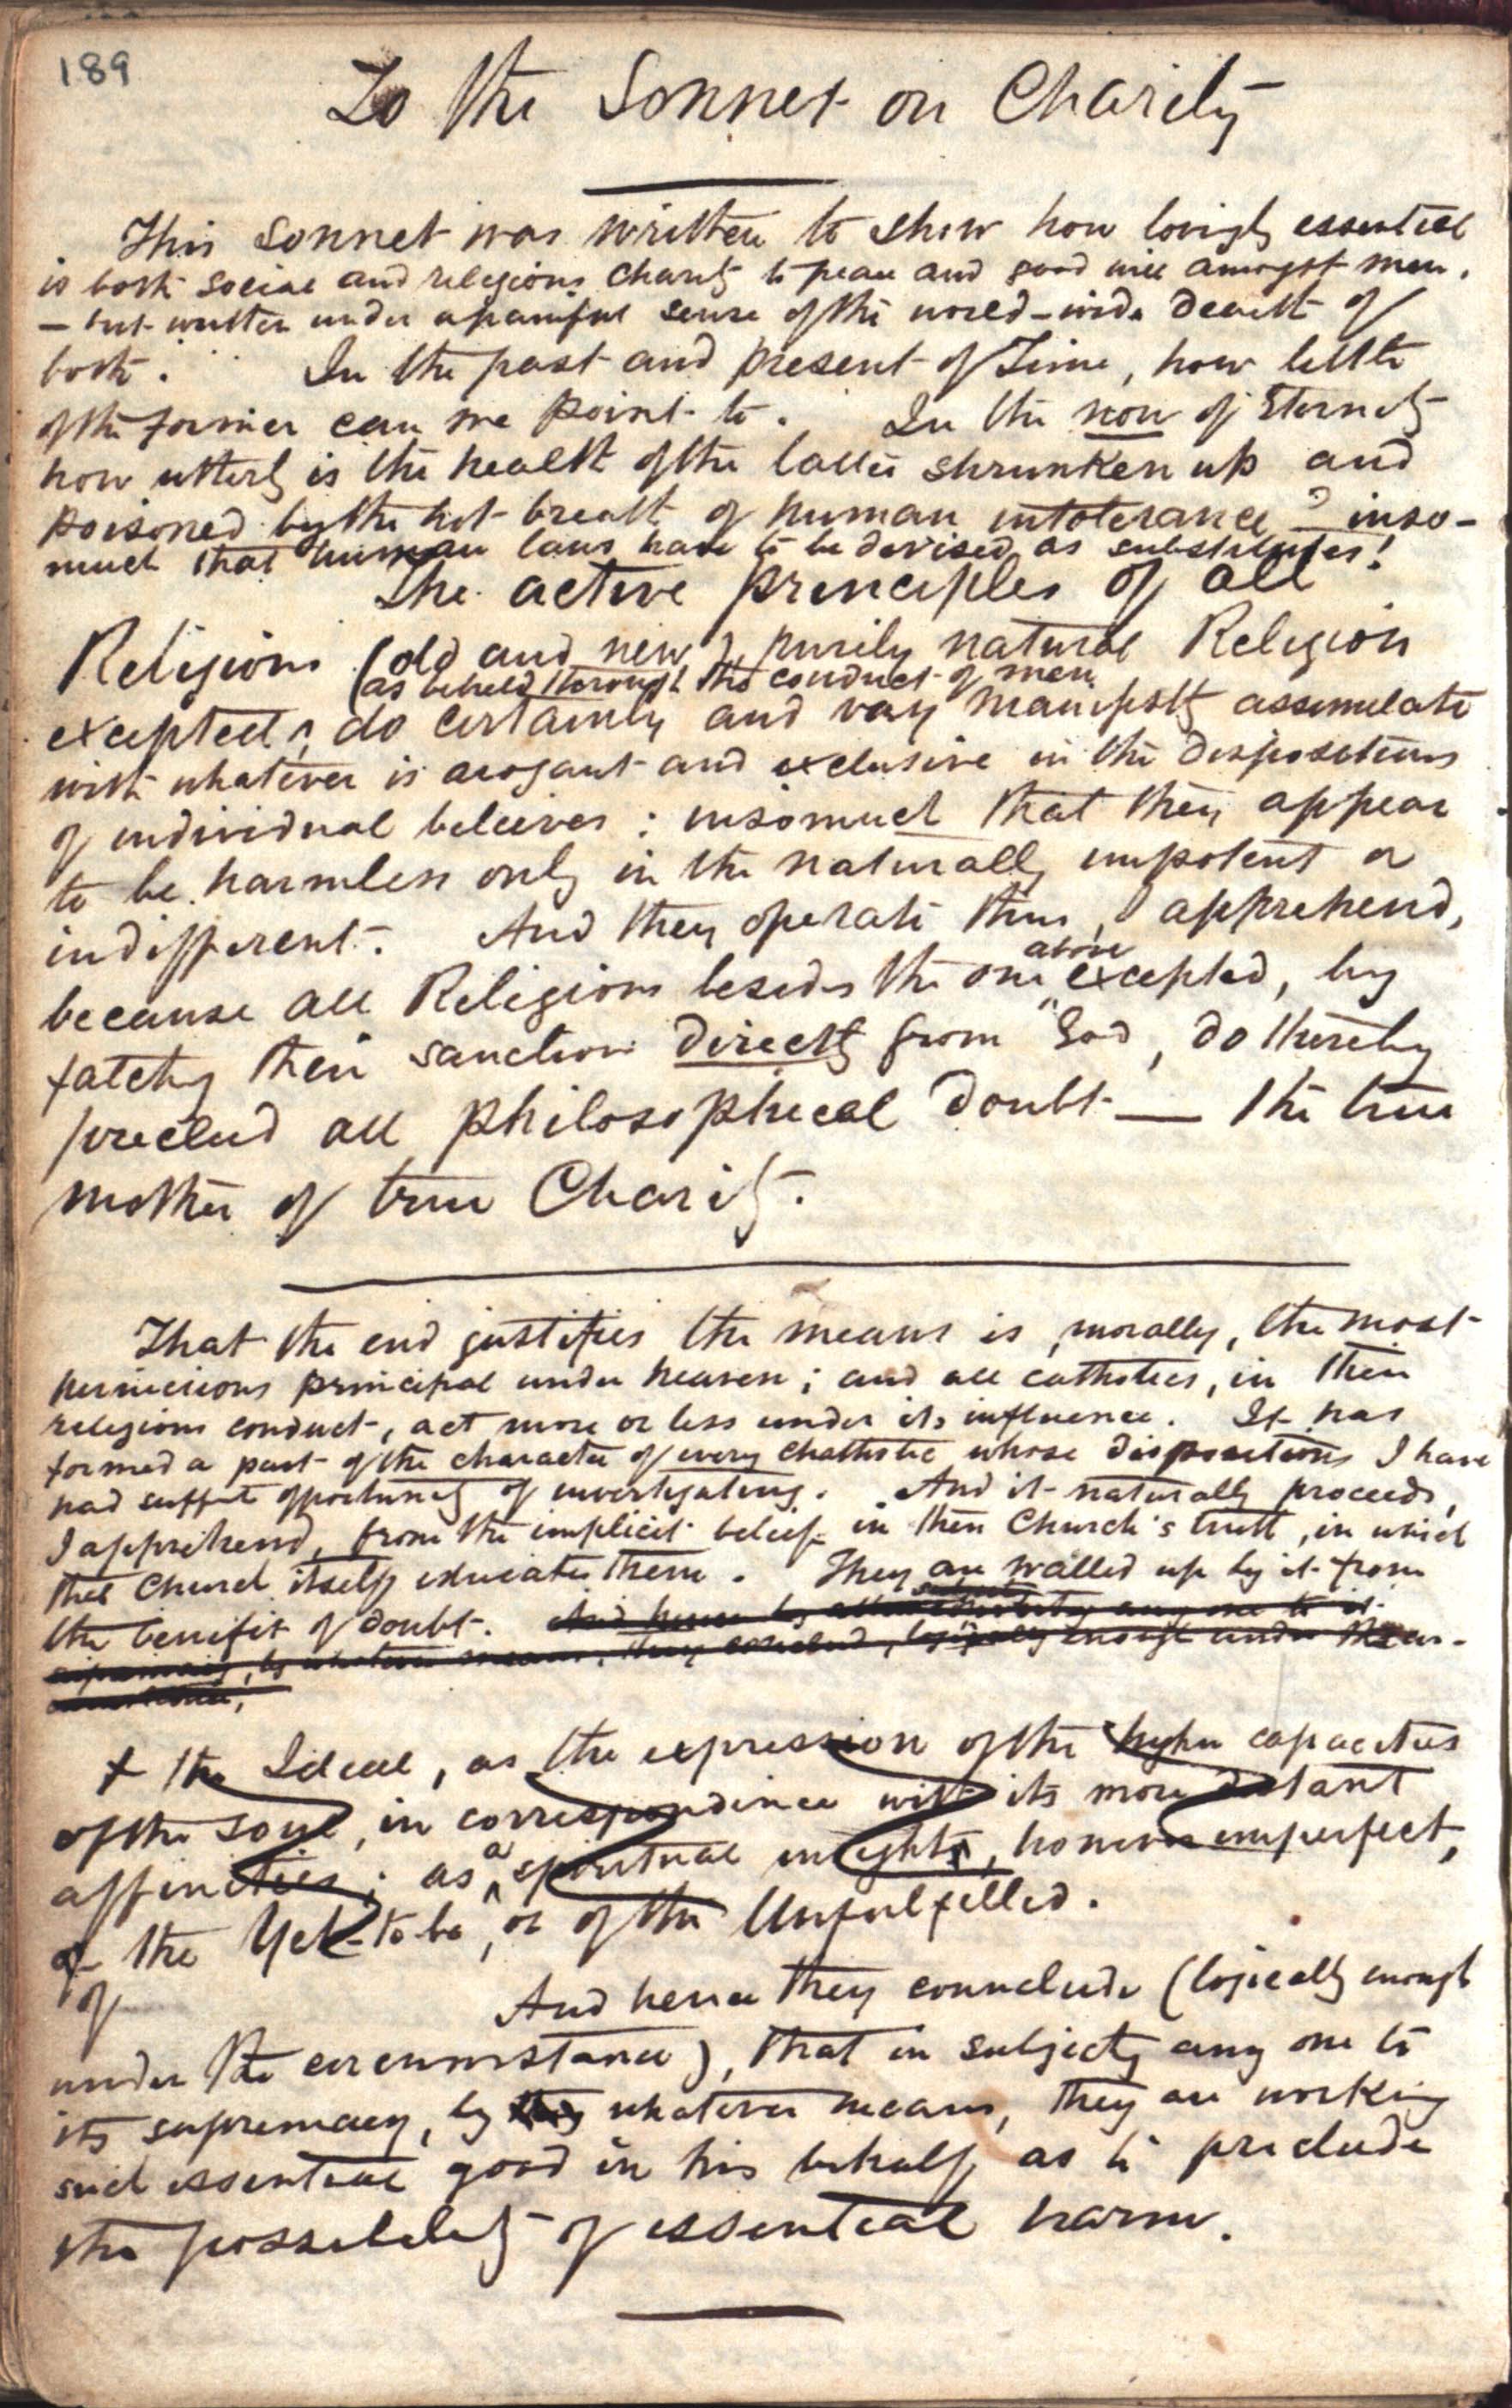 189
To the Sonnet on Charity
This sonnet was written to shew how lovingly essential
is both social and religious charity to peace and good will amongst men,
– but written under a painful sense of the world-wide dearth of
both. In the past and present of Time, how little
of the former can we point to. In the now of Eternity
how utterly is the health of the latter shrunken up and
poisoned by the hot breath of human intolerance – inso-
much that human laws have to be devised as substitutes!
The active principles of all
Religions (old and new), purily natural Religion
(as beheld through the conduct of men
excepted, do certainly and very manifestly assimulate
with whatever is arogant and exclusive in the dispositions
of individual beleivers: insomuch that they appear
to be harmless only in the naturally impotent or
indifferent. And they operate thus, I apprehend,
above
because all Religions besides the one excepted, by
fatching their sanction directly from God, do thereby
preclud all philosophical doubt — the true
mother of true Charity.
That the end justifies the means is, morally, the most
pernicious principal under heaven; and all catholics, in their
religious conduct, act more or less under its influence. It has
formed a part of the character of every Chatholic whose dispositions I have
had suffict opportunity of investigating. And it naturally proceeds,
I apprehend, from the implicit beleif in their Church's truth, in which
that Church itself educates them. They are walled up by it from
the benifit of doubt. And hence by
supremacy, by whatever means, they conclud, logically enough under the cir-
cumstance,
+ the Ideal, as the expression of the higher capacities
of the soul, in correspondence with its more distant
affinities; as a spiritual insight, however imperfect,
of the Yet-to-be, or of the Unfulfilled.
of
And hence they connclude (logically enough
under the circumstance), that in subjectg any one to
its supremacy, by whatever means, they are working
such essential good in his behalf, as to preclude
the possibility of essential harm.